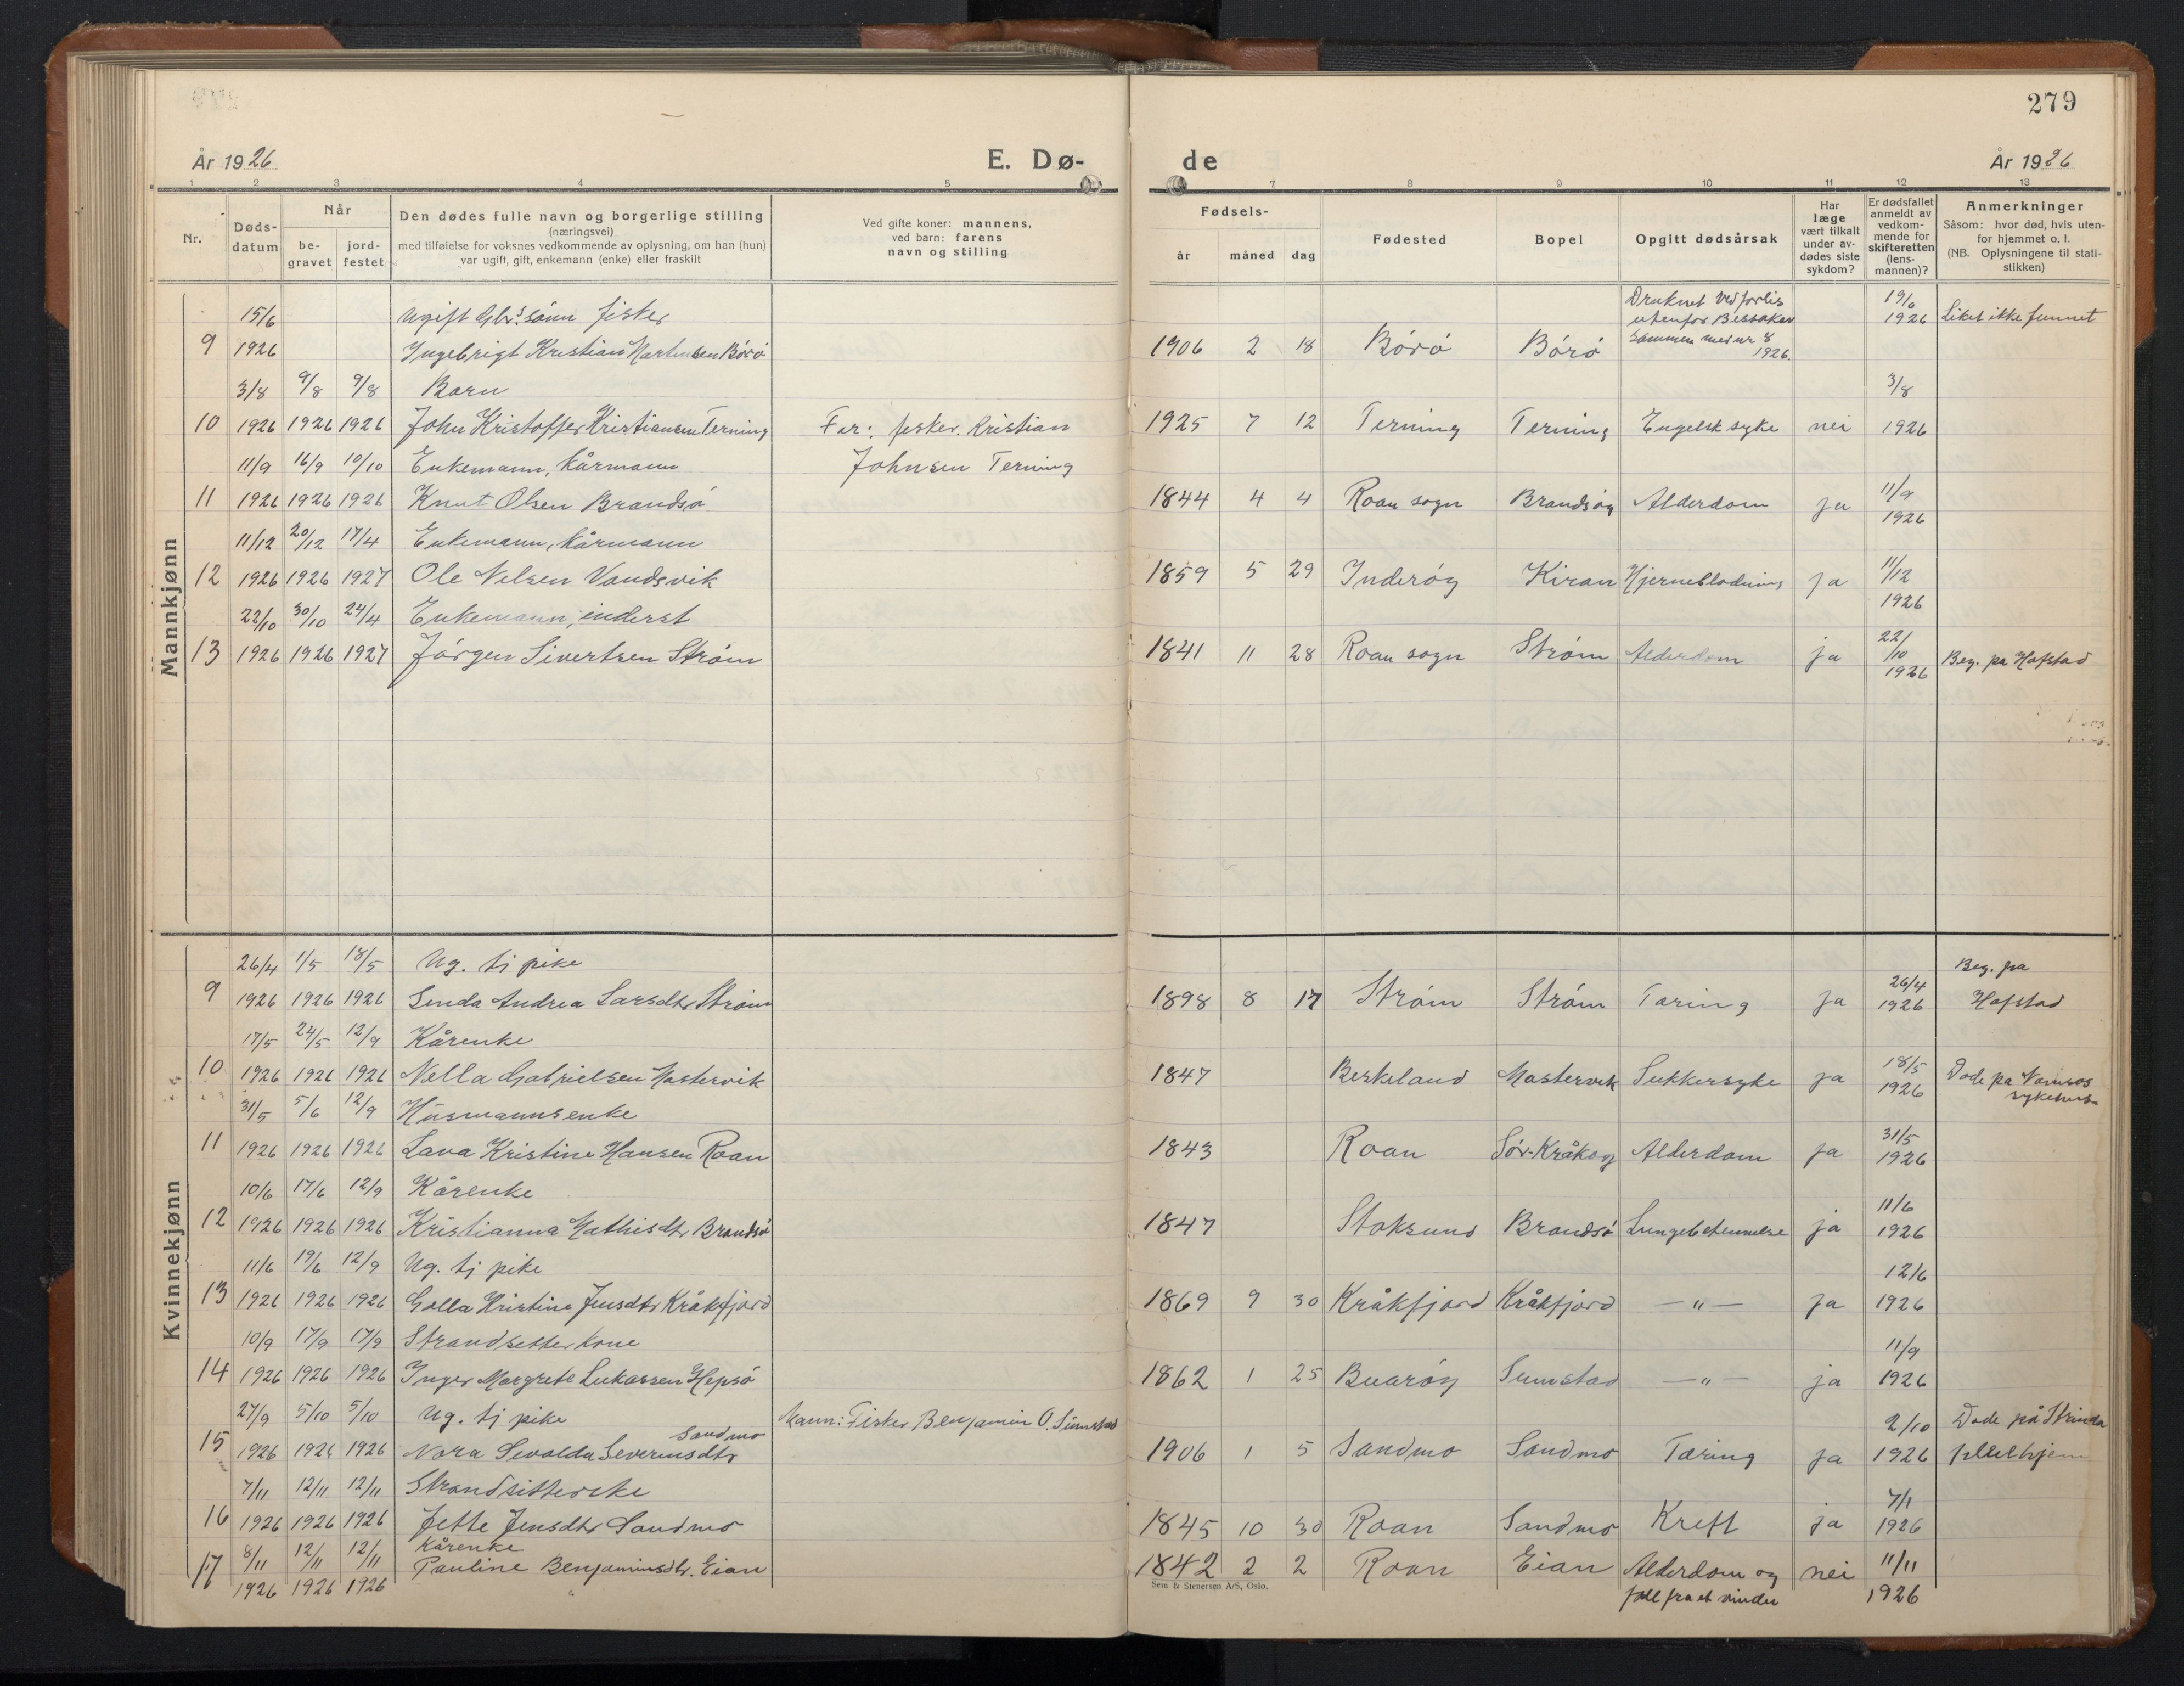 279
År 1926 E. Dø- de År 1926
1 2 3 4 5 7 8 9 10 11 12 13
Nr. Døds-datum Når be-gravet jord-festet
Den dødes fulle navn og borgerlige stilling
(næringsvei)
med tilføielse for voksnes vedkommende av oplysning, om han (hun)
var ugift, gift, enkemann (enke) eller fraskilt
Ved gifte koner: mannens,
ved barn: farens
navn og stilling
Fødsels-
år måned dag
Fødested Bopel Opgitt dødsårsak
Har læge vært tilkalt under av-dødes siste sykdom?
Er dødsfallet anmeldt av vedkom-mende for skifteretten (lens-mannen)?
Anmerkninger
Såsom: hvor død, hvis uten-
for hjemmet o. l.
(NB. Oplysningene til stati-
stikken)
Mannkjønn
15/6 Ugift Gbr.s sønn fisker Druknet ved forlis 19/6
utenfor Bessaker 1926 Liket ikke funnet
9 1926 Ingebrigt Kristian Martinsen Børø 1906 2 18 Børø Børø sammen med nr 8
1926.
3/8 9/8 9/8 Barn 3/8
10 1926 1926 1926 John Kristoffer Kristiansen Terning Far: fisker. Kristian 1925 7 12 Terning Terning Engelsk syke nei 1926
11/9 16/9 10/10 Enkemann, kårmann Johnsen Terning
11 1926 1926 1926 Knut Olsen Brandsø 1844 4 4 Roan sogn Brandsøy Alderdom ja 11/9
1926
11/12 20/12 17/4 Enkemann, kårmann
12 1926 1926 1927 Ole Nelsen Vandsvik 1859 5 29 Inderøy Kiran Hjerneblødning ja 11/12
1926
22/10 30/10 24/4 Enkemann, inderst
13 1926 1926 1927 Jørgen Sivertsen Strøm 1841 11 28 Roan sogn Strøm Alderdom ja 22/10
1926 Beg. på Hofstad
Kvinnekjønn
26/4 1/5 18/5 Ug. tj pike Beg. på
9 1926 1926 1926 Senda Andrea Larsdtr Strøm 1898 8 17 Strøm Strøm Tæring ja 26/4 1926 Hofstad
17/5 24/5 12/9 Kårenke
10 1926 1926 1926 Nella Gabrielsen Mastervik 1847 Beskeland Mastervik Sukkersyke ja 18/5 1926 Døde på Namsos
sykehus
31/5 5/6 12/9 Husmannsenke
11 1926 1926 1926 Lava Kristine Hansen Roan 1843 Roan Sør-Kråkøy Alderdom ja 31/5 1926
10/6 17/6 12/9 Kårenke
12 1926 1926 1926 Kristianna Mathisdtr Brandsø 1847 Stoksund Brandsø Lungebetennelse ja 11/6 1926
11/6 19/6 12/9 Ug. tj pike 12/6
13 1926 1926 1926 Golla Kristine Jensdtr Kråkfjord 1869 9 30 Kråkfjord Kråkfjord —"— ja 1926
10/9 17/9 17/9 Strandsitterkone 11/9
14 1926 1926 1926 Inger Margrete Lukassen Hepsø 1862 1 25 Buarøy Sumstad —"— ja 1926
27/9 5/10 5/10 Ug. tj pike Mann: Fisker Benjamin O. Sumstad 2/10 Døde på Strinda
Sandmo
15 1926 1926 1926 Nora Sevalda Severinsdtr 1906 1 5 Sandmo Sandmo Tæring ja 1926 pleiehjem
7/11 12/11 12/11 Strandsitterske 7/1
16 1926 1926 1926 Jette Jensdtr Sandmo 1845 10 30 Roan Sandmo Kreft ja 1926
8/11 12/11 12/11 Kårenke
17 Pauline Benjaminsdtr. Eian 1842 2 2 Roan Eian Alderdom og nei 11/11
1926 1926 1926 fall fra et vindu 1926
Sem & Stenersen A/S, Oslo.